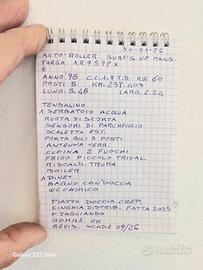 30-01-26
AUTO-ROLLER SURF'S UP MANS.
TARGA AR959PX
ANNO 98 C.C. 1.9 T.D. KW 60
POSTI 5 KM. 237.403
LUNG. 5.48 LARG. 2.24
TENDALINO
1 SERBATOIO ACQUA
RUOTA DI SCORTA
SENSORI DI PARCHEGGIO
SCALETTA EST.
PORTA BICI 3 POSTI
ANTENNA TERR.
CUCINA 2 FUOCHI
FRIGO PICCOLO TRIVAL.
RISCALD. TRUMA
BOILER
BAGNO CON DOCCIA
WC CHIMICO
PIATTO DOCCIA CREP.
CINGHIA DISTRIB. FATTA 2023
+ TAGLIANDO
GOMME OK
REVIS. SCADE 09/26
Galaxy S23 Ultra
subito